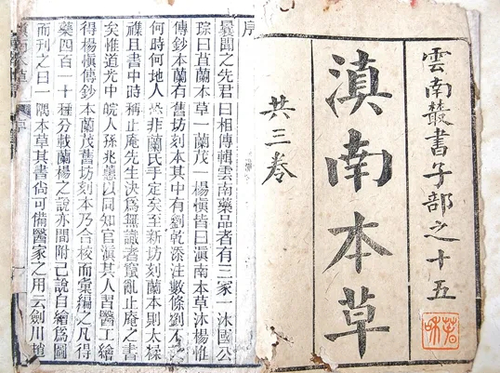 雲南叢書子部之十五
滇南本草
共三卷
序
曩聞之先君曰相傳輯雲南藥品者有三家一沐國公
琮曰苴蘭本草一蘭茂一楊慎皆曰滇南本草沐楊惟
傳鈔本蘭有舊坊刻本其中有劉乾添注數條劉不
何時何地人恐非蘭氏手定矣至新坊刻蘭本則太
雜且書中時稱止庵先生決為無識者竄亂止庵之書
矣惟道光中皖人孫兆蕙以同知官滇其人吉醫工繪
得楊慎傳鈔本蘭茂舊坊刻本乃合校而彙編之凡得
藥四百一十種分載蘭楊之說亦間附己說自繪為圖
而刊之曰一隅本草其書尚可備醫家之用云劍川趙